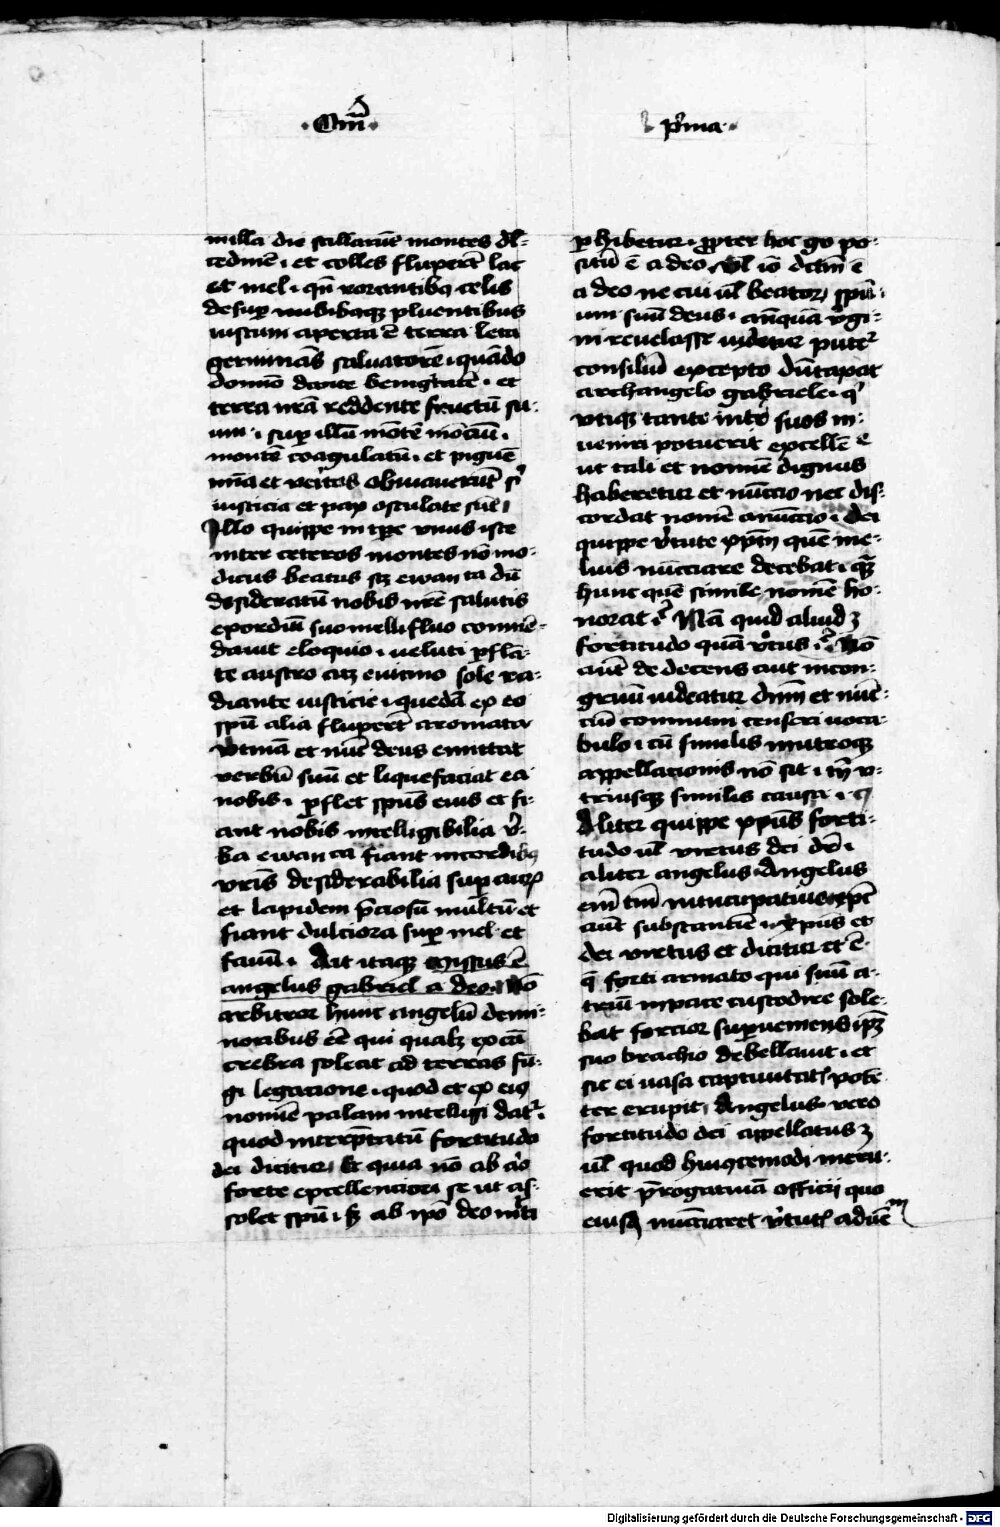 · Om̅ ·
p̾ma ·
in illa die stillarūt montes dul=
cedinē · et colles fluxerūt lac
et mel · qn̄ rorantibꝰ celis
desuꝑ nubibꝰqꝫ pluentibus
iustum aperta ē terra leta
germinās saluatorē · quādo
domīo dante benigtatē · et
terra nr̄a reddente fructū su-
um · suꝑ illū mōtē mōtiū ·
montē coagulatū · et piguē
mīa et veritas obuiauerūt sͥ
iusticia et pax osculate sūt ·
Illo quippe in tꝑe vnus iste
inter ceteros montes nō mo-
dicus beatus scꝫ ewan ta dū
desideratū nobis nr̄e salutis
exordiū suo mellifluo commē-
dauit eloquio · veluti ꝑflā-
te austro atqꝫ euicino sole ra-
diante iusticie · quedā ex eo
spū alia fluxerūt aromata
vtinā et nūc deus emittat
verbū suū et liquefaciat ea
nobis · ꝑflet spūs eius et fi-
ant nobis intelligibilia v̾-
ba ewan ca fiant in cordibꝰ
vris̄ desiderabilia suꝑ auꝝ
et lapidem p̄ciosū multū et
fiant dulciora suꝑ mel et
fauū · Ait itaqꝫ Missus ē
angelus gabriel a deo · Nō
arbitror hunc angelū de mi-
noribus ēē qui qualꝫ ex cā
crebra soleat ad terras fū-
gi legacione · quod et ex eiꝰ
nomīe palam intelligi datr̄ ·
quod interp̄tatū fortitudo
dei dicitur · Et quia nō ab alio
forte excellenciori se ut as-
solet spū · sꝫ ab ipō deo mitti
ꝑhibetur · ꝓpter hoc go po-
situ ē a deo vl̄ iō dctm̄ ē
a deo ne cui vl̄ beatoꝝ spūu-
um suū deus · anquā v̾gi-
ni reuelasse videtur putetr̄
consiliū excepto dūtaxat
archangelo gabriele · qͥ
vtiqꝫ tante int̾ suos in-
ueniri potuerit excellē e
ut tali et nomīe dignus
haberetur et nūccio nec dis-
cordat nomē a nūccio · dei
quippe v̾tute xpm̄ quē me-
lius nūcciare decebat · qꝫ
hunc quē simile nomen ho-
norat · Nā quid aliud ꝫ
fortitudo quā v̾tus · Nō
aut̄ de decens aut incon-
gruū videatur dnm̄ et nūc-
cū communi censeri voca-
bulo · cū similis in utroqꝫ
appellacionis nō sit · tn̄ v-
triusqꝫ similis causa ·
Aliter quippe xpūs forti-
tudo vl̄ virtus dei dr̄ ·
aliter angelus · Angelus
em̄ tm̄ nuncupatiue xpc̄
aut̄ substantiē · xpus et
dei virtus et dicitur et ē
q̄ forti armato qui suū a-
triū in pace custodire sole-
bat forcior suꝑueniens ipꝫ
suo brachio debellauit · et
sic ei vasa captiuitatꝭ potē-
ter eripuit · Angelus vero
fortitudo dei appellatus ꝫ
vl̄ quod huiꝰcemodi meru-
erit p̄rogatiuā officii quo
eiusdē nūcciaret v̾tutꝭ aduē m
Digitalisierung gefördert durch die Deutsche Forschungsgemeinschaft - DFG